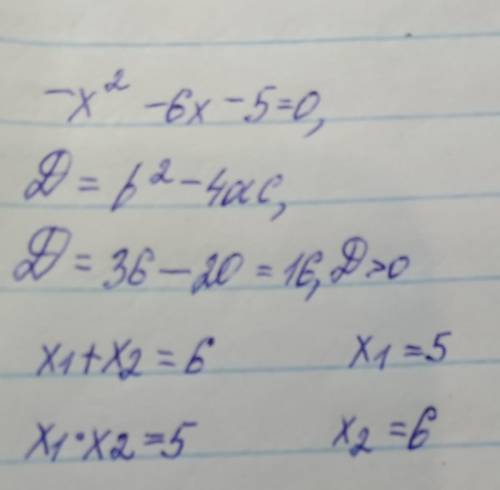 -x² -6x -5=0,
D = b² - 4ac,
D = 36 - 20 = 16, D>0
x1+x2 = 6 x1 = 5
x1·x2 = 5 x2 = 6